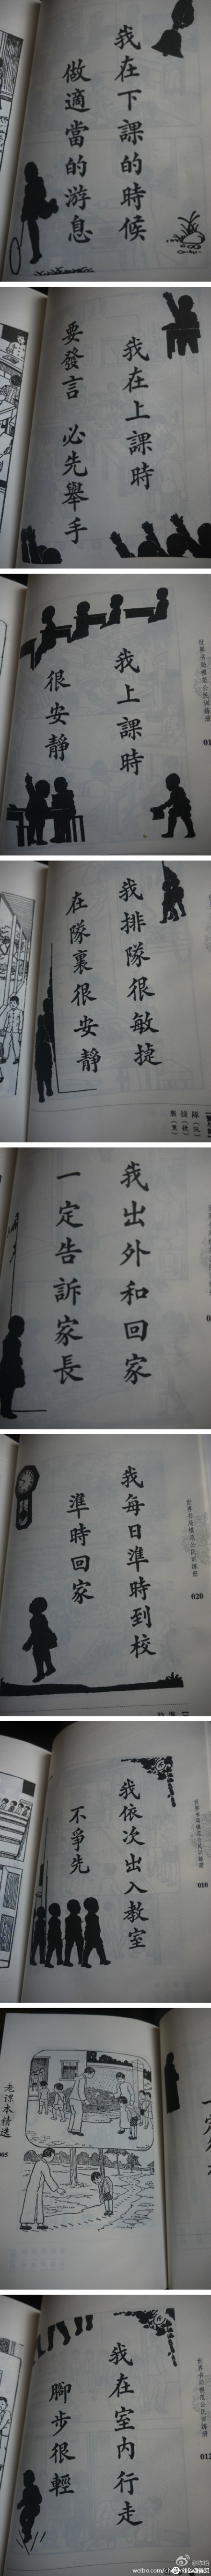 我在下課的時候
做適當的游息
我在上課時
要發言 必先舉手
世界书局模范公民训练册
我上課時
很安靜
我排隊很敏捷
在隊裏很安靜
我出外和回家
一定告訴家長
世界书局模范公民训练册
020
我每日準時到校
準時回家
世界书局模范公民训练册
010
我依次出入教室
不爭先
老课本精选
世界书局模范公民训练册
012
我在室內行走
腳步很輕